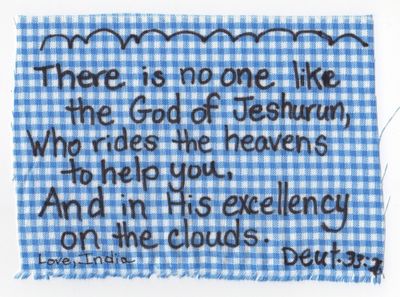 There is no one like
the God of Jeshurun,
Who rides the heavens
to help you,
And in His excellency
on the clouds.
Love, India
Deut. 33:26